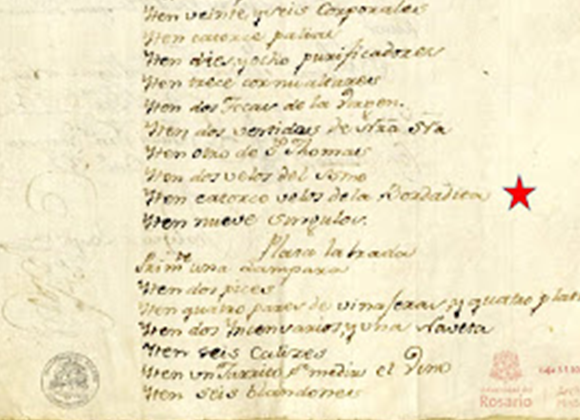 Yten veinte y seis Corporales
Yten catorce palias
Yten dies y ocho purificadores
Yten trece cornualtares
Yten dos Tocas de la Virgen.
Yten dos vestidos de Ntra Sra
Yten otro de Sto Thomas
Yten dos velos del
Yten catorce velos de la
Yten nueve singulos.
Plata labrada
Primte una Lampara
Yten dos pices
Yten quatro pares de vinajeras, y quatro plat
Yten dos Incensarios y una Naveta
Yten seis Calizes
Yten un Jarrito pa medias el Vino
Yten seis blandones
Universidad del
Rosario